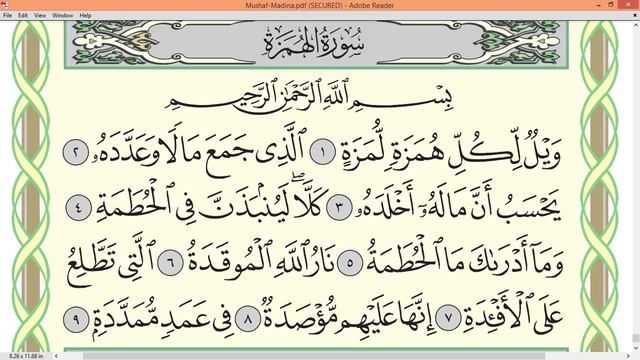 Mushaf-Madina.pdf (SECURED) - Adobe Reader
File Edit View Window Help
سُورَةُ الهُمَزَةِ
بِسْمِ اللَّهِ الرَّحْمَٰنِ الرَّحِيمِ
وَيْلٌ لِّكُلِّ هُمَزَةٍ لُّمَزَةٍ ١ الَّذِي جَمَعَ مَالًا وَعَدَّدَهُۥ ٢
يَحْسَبُ أَنَّ مَالَهُۥٓ أَخْلَدَهُۥ ٣ كَلَّاۖ لَيُنۢبَذَنَّ فِي الْحُطَمَةِ ٤
وَمَآ أَدْرَىٰكَ مَا الْحُطَمَةُ ٥ نَارُ اللَّهِ الْمُوقَدَةُ ٦ الَّتِي تَطَّلِعُ
عَلَى الْأَفْـِٔدَةِ ٧ إِنَّهَا عَلَيْهِم مُّؤْصَدَةٌ ٨ فِي عَمَدٍ مُّمَدَّدَةٍ ٩
8.26 x 11.68 in